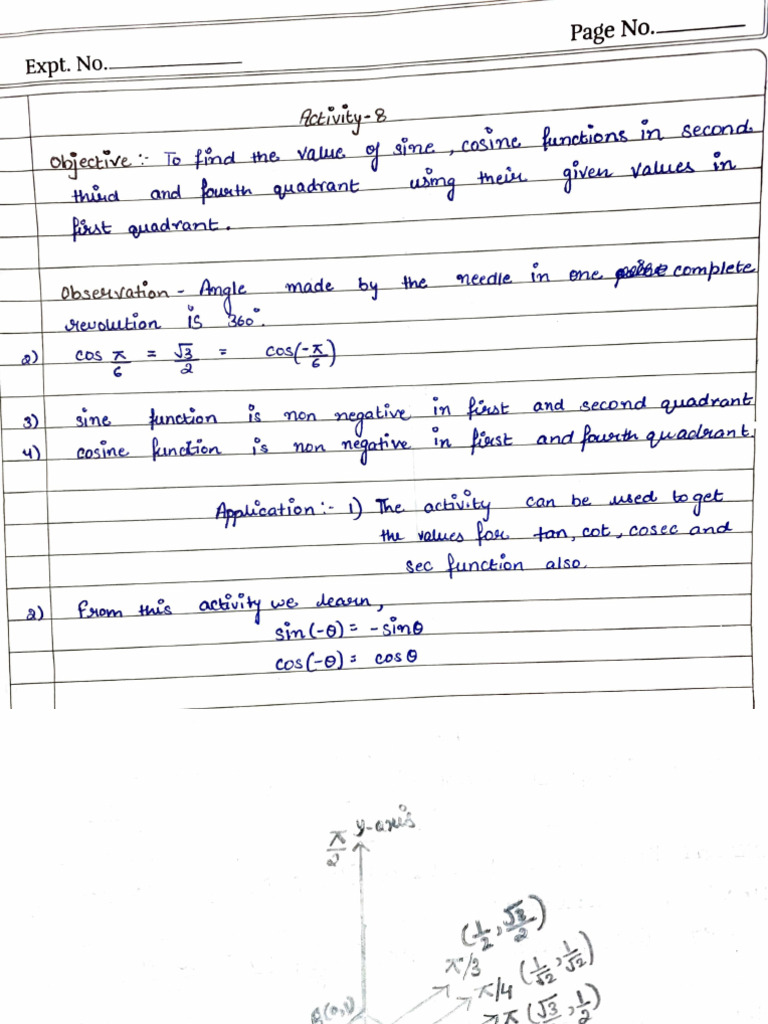 Page No.
Expt. No.
Activity-8
Objective:- To find the value of sine, cosine functions in second
third and fourth quadrant using their given values in
first quadrant.
Observation - Angle made by the needle in one complete
revolution is 360°.
2) cos π/6 = √3/2 = cos(-π/6)
3) sine function is non negative in first and second quadrant
4) cosine function is non negative in first and fourth quadrant.
Application:- 1) The activity can be used to get
the values for tan, cot, cosec and
sec function also.
2) From this activity we learn,
sin(-θ) = -sinθ
cos(-θ) = cosθ
π/2 y-axis
(1/2, √3/2)
π/3
π/4 (1/√2, 1/√2)
B(0,1)
π (√3, 1/2)